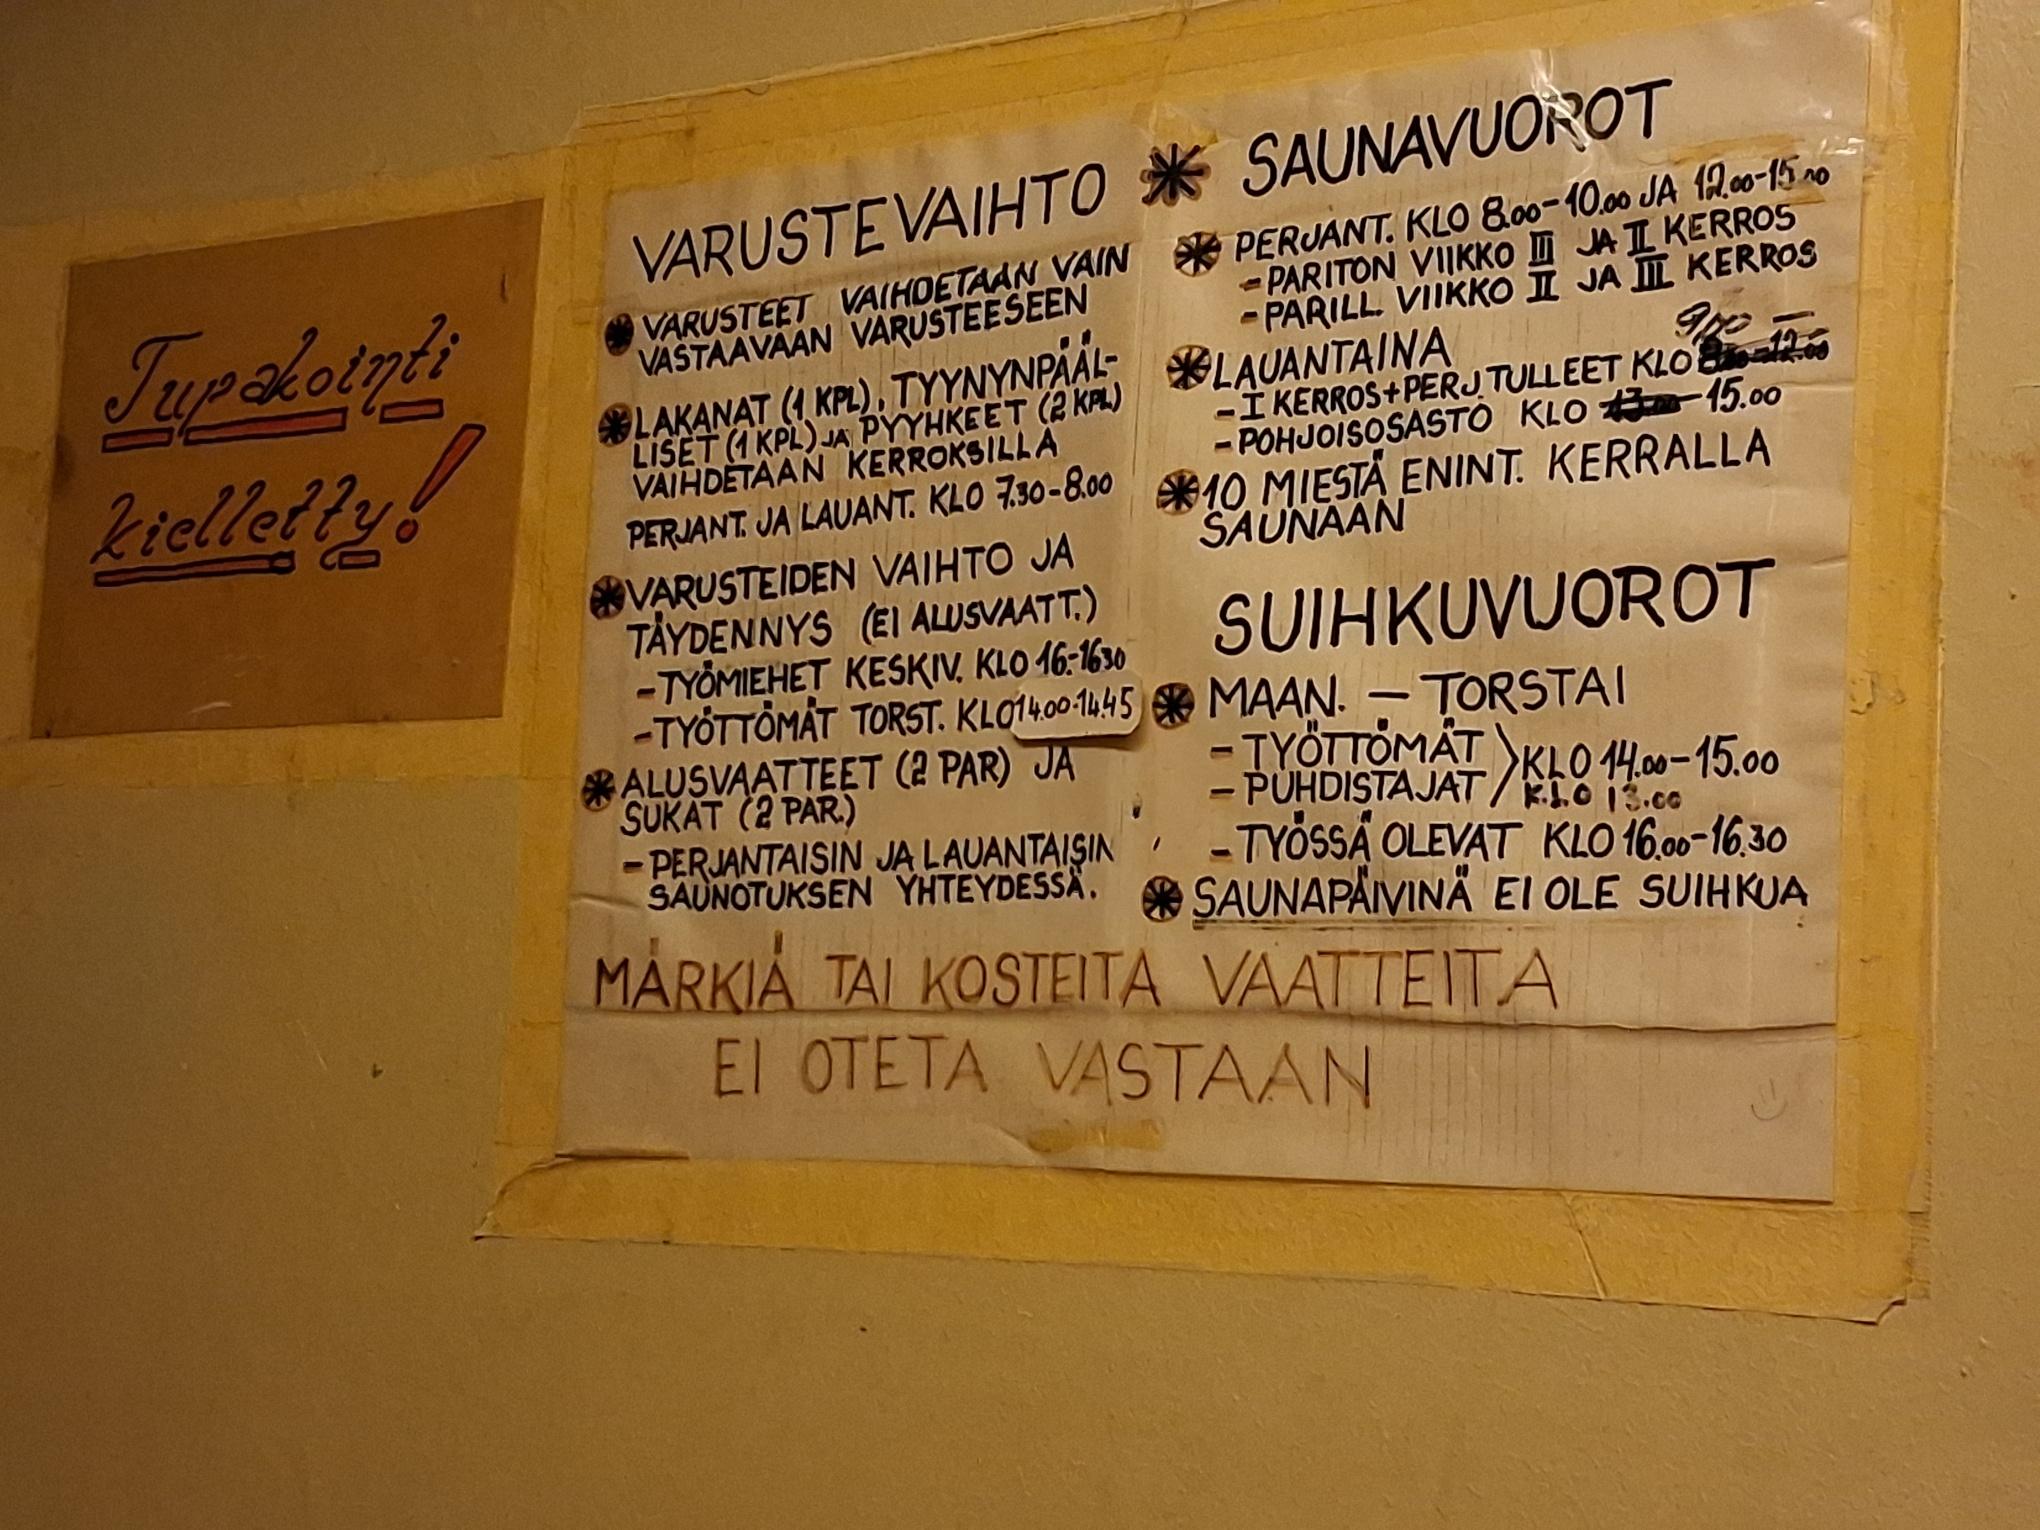 Tupakointi
kielletty!
VARUSTEVAIHTO
VARUSTEET VAIHDETAAN VAIN
VASTAAVAAN VARUSTEESEEN
LAKANAT (1 KPL), TYYNYNPÄÄL-
LISET (1 KPL) JA PYYHKEET (2 KPL)
VAIHDETAAN KERROKSILLA
PERJANT. JA LAUANT. KLO 7.30-8.00
VARUSTEIDEN VAIHTO JA
TÄYDENNYS (EI ALUSVAATT.)
-TYÖMIEHET KESKIV. KLO 16.-1630
-TYÖTTÖMÄT TORST. KLO 14.00-14.45
ALUSVAATTEET (2 PAR) JA
SUKAT (2 PAR.)
- PERJANTAISIN JA LAUANTAISIN
SAUNOTUKSEN YHTEYDESSÄ.
SAUNAVUOROT
PERJANT. KLO 8.00-10.00 JA 12.00-15.00
-PARITON VIIKKO III JA II KERROS
-PARILL. VIIKKO II JA III KERROS
LAUANTAINA
- I KERROS+PERJ. TULLEET KLO 12.00
-POHJOISOSASTO KLO 13.00-15.00
10 MIESTÄ ENINT. KERRALLA
SAUNAAN
SUIHKUVUOROT
MAAN. - TORSTAI
- TYÖTTÖMÄT
- PUHDISTAJAT
KLO 14.00-15.00
KLO 13.00
- TYÖSSÄ OLEVAT KLO 16.00-16.30
SAUNAPÄIVINÄ EI OLE SUIHKUA
MÄRKIÄ TAI KOSTEITA VAATTEITA
EI OTETA VASTAAN